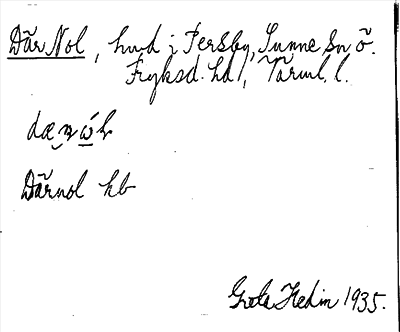 Där Nol, hmd i Persby, Sunne sn ö.
Fryksd. hd, Värml. l.
Därnol hb
Greta Hedin 1935.